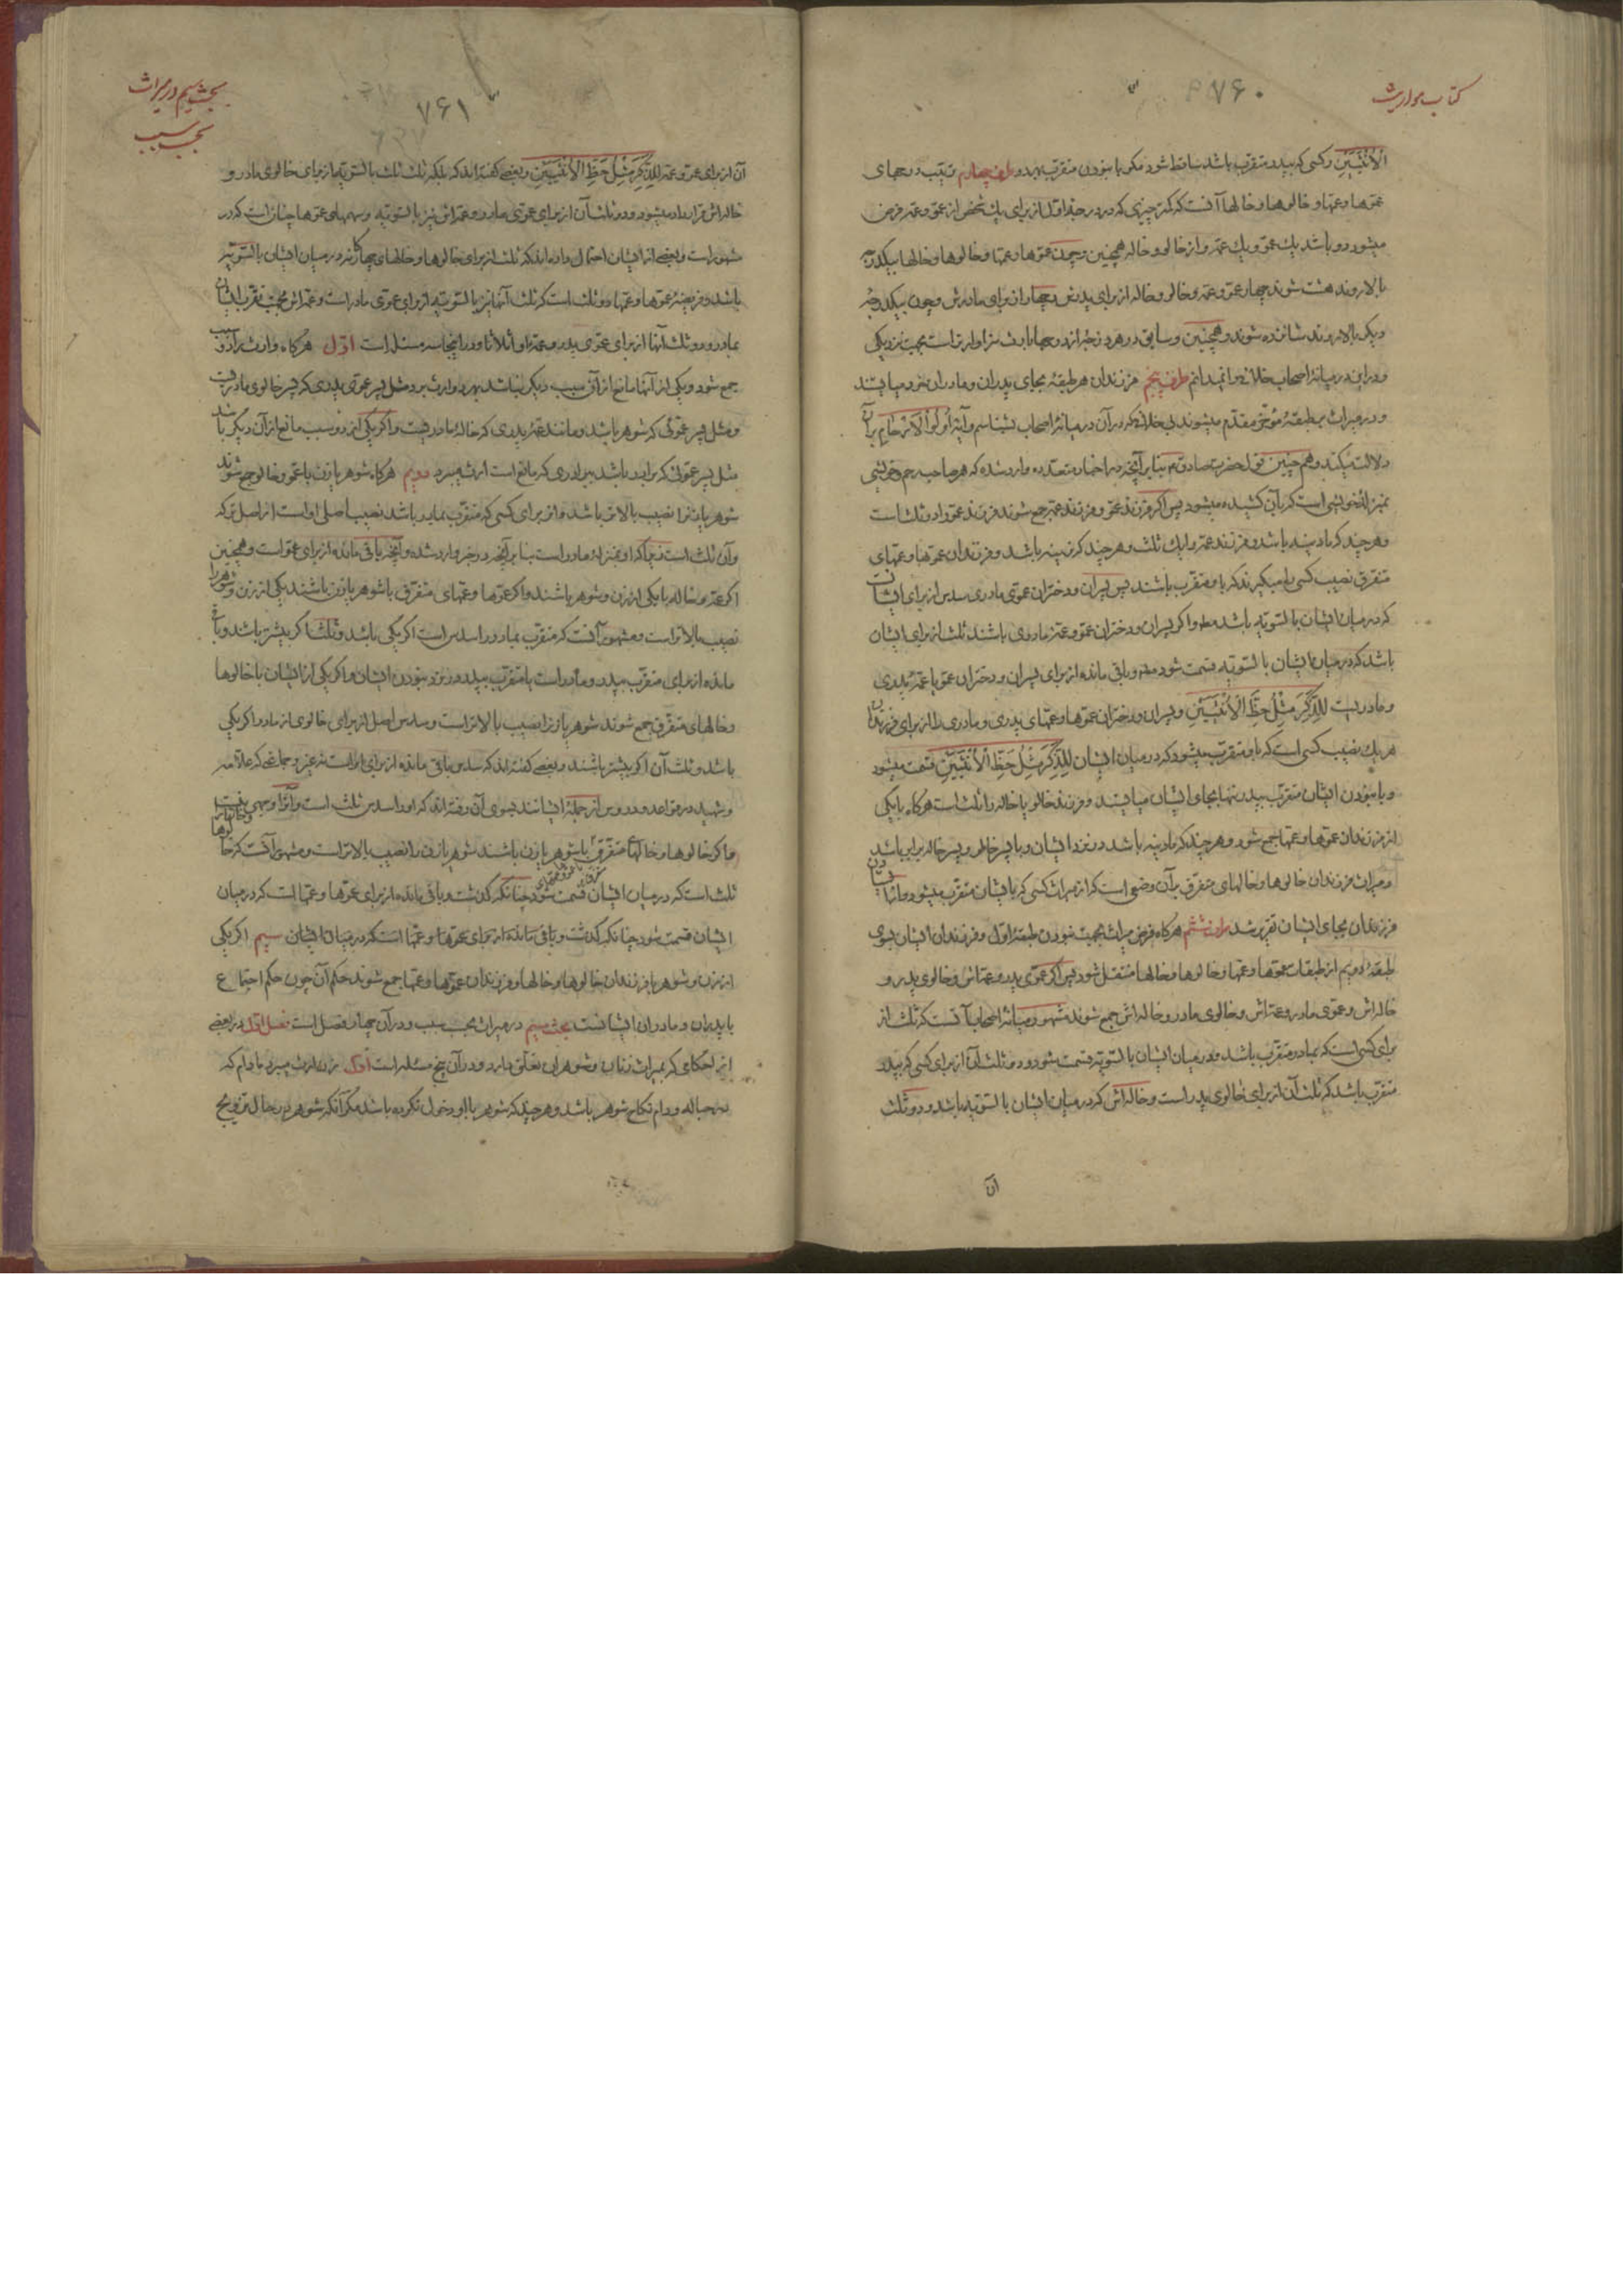 کتاب مواریث
۷۶۰
الْأُنْثَیَیْنِ و کسی که بپدر متقرب باشد ساقط شود مکر با نبودن متقرب بابوین طرف چهارم ترتیب درجهای
عموها و عمها و خالوها و خالها آنست که کمتر چیزی که در درجهٔ اول از برای یك شخص از عمو و عمه فرض
میشود دو باشد یك عمو و یك عمه و از خالو و خاله همچنین و چون عموها و عمها و خالوها و خالها بیکدرجه
بالا روند هشت شوند چهار عمو و عمه و خالو و خاله از برای پدرش و چهار از برای مادرش و چون بیکدرجهٔ
دیکر بالا روند شانزده شوند و همچنین و سابق در هر درجهٔ از درجها بارث سزاوارتر است بجهت نزدیکی
و در این در میانهٔ اصحاب خلافی را نمیدانم طرف پنجم فرزندان هر طبقهٔ بجای پدران و مادران خود میایستند
و در میراث بر طبقهٔ مؤخر مقدم میشوند بی خلافی که در آن در میانهٔ اصحاب بشناسم و آیهٔ اُولُوا الْاَرْحَامِ بر آن
دلالت میکند و هم چنین قول حضرت صادق ع بنا بر آنچه در اخبار متعدده وارد شده که هر صاحب رحم و خویشی
بمنزلهٔ خویشی است که بآن کشیده میشود پس اکر فرزند عمو و فرزند عمه جمع شوند فرزند عمو را دو ثلث است
و هر چند که مادینه باشد و فرزند عمه را یك ثلث و هر چند که نرینه باشد و فرزندان عموها و عمهای
متفرق نصیب کسی را میکیرند که باو متقرب باشند پس پسران و دختران عموی مادری سدس از برای ایشانست
که در میان ایشان بالسویه باشد و اکر پسران و دختران عمو و عمهٔ مادری باشند ثلث از برای ایشان
باشد که در میان ایشان بالسویه قسمت شود و باقی مانده از برای پسران و دختران عمو یا عمهٔ پدری
و مادریست لِلذَّکَرِ مِثْلُ حَظِّ الْاُنْثَیَیْنِ و پسران و دختران عموها و عمهای پدری و مادری را از برای فرزندان
هر یك نصیب کسی است که باو متقرب میشود که در میان ایشان لِلذَّکَرِ مِثْلُ حَظِّ الْاُنْثَیَیْنِ قسمت میشود
و با نبودن ایشان متقرب بپدر تنها بجای ایشان میایستد و فرزند خالو یا خاله را ثلث است هر کاه با یکی
از فرزندان عموها و عمها جمع شود و هر چند که مادینه باشد و نزد ایشان و با پسر خالو و پسر خاله برابر باشد
و میراث فرزندان خالوها و خالهای متفرق بر آن وضعی است که از میراث کسی که بایشان متقرب میشود و
فرزندان بجای ایشان تقریر شد طرف ششم هر کاه فرض میراث بجهت نبودن طبقهٔ اول و فرزندان ایشان بسوی
طبقهٔ دویم از طبقات عموها و عمها و خالوها و خالها منتقل شود پس اکر عموی پدر و عمه‌اش و خالوی پدر و
خاله‌اش و عموی مادر و عمه‌اش و خالوی مادر و خاله‌اش جمع شوند مشهور در میانهٔ اصحاب آنست که ثلث از
برای کسی است که بمادر متقرب باشد و در میان ایشان بالسویه قسمت شود و دو ثلث آن از برای کسی که بپدر
متقرب باشد که ثلث آن از برای خالوی پدر است و خاله‌اش که در میان ایشان بالسویه باشد و دو ثلث
آن
بحث سیم در میراث
بحسب سبب
۷۶۱
آن از برای عمو و عمه لِلذَّکَرِ مِثْلُ حَظِّ الْاُنْثَیَیْنِ و بعضی کفته‌اند که بلکه ثلث ثلث بالسویه از برای خالوی مادر و
خاله‌اش قرار داده میشود و دو ثلث آن از برای عموی مادر و عمه‌اش نیز بالسویه و سهمهای عموها چنان است که در
مشهور است و بعضی از ایشان احتمال داده‌اند که ثلث از برای خالوها و خالهای چهار کانه در میان ایشان بالسویه
باشد و فریضهٔ عموها و عمها دو ثلث است که ثلث آنها نیز بالسویه از برای عموی مادر است و عمه‌اش بجهت تقرب ایشان
بمادر و دو ثلث آنها از برای عموی پدر و عمه‌اش اثلاثا و در اینجا سه مسئله است اول هر کاه وارث را دو سبب
جمع شود و یکی از آنها مانع از آن سبب دیکر نباشد بهر دو ارث برد مثل پسر عموی پدری که پسر خالوی مادریست
و مثل پسر عموئی که شوهر باشد و مانند عمهٔ پدری که خالهٔ مادریست و اکر یکی از دو سبب مانع از آن دیکر باشد
مثل پسر عموئی که برادر باشد ببرادری که مانع است ارث میبرد دویم هر کاه شوهر یا زن با عمو و خالو جمع شوند
شوهر یا زن را نصیب بالاتر باشد و از برای کسی که متقرب بمادر باشد نصیب اصلی او است از اصل ترکه
و آن ثلث است زیرا که او بمنزلهٔ مادر است بنا بر آنچه در خبر وارد شده و آنچه باقی مانده از برای عمو است و همچنین
اکر عمه و خاله با یکی از زن و شوهر باشند و اکر عموها و عمهای متفرق با شوهر یا زن باشند یکی از زن و شوهر را
نصیب بالاتر است و مشهور آنست که متقرب بمادر را سدس است اکر یکی باشد و ثلث اکر بیشتر باشد و باقی
مانده از برای متقرب بپدر و مادر است یا متقرب بپدر در نزد نبودن ایشان و اکر یکی از ایشان با خالوها
و خالهای متفرق جمع شوند شوهر یا زن را نصیب بالاتر است و سدس اصل از برای خالوی از مادر اکر یکی
باشد و ثلث آن اکر بیشتر باشند و بعضی کفته‌اند که سدس باقی مانده از برای او است نه غیر و جماعتی که علامه
و شهید در قواعد و دروس از جملهٔ ایشانند بسوی آن رفته‌اند که او را سدس ثلث است
و اکر خالوها و خالها متفرق با شوهر یا زن باشند شوهر یا زن را نصیب بالاتر است و مشهور آنست که خالوها
ثلث است که در میان ایشان قسمت شود چنانکه کذشت و باقی مانده از برای عموها و عمها است که در میان
ایشان قسمت شود چنانکه کذشت و باقی مانده از برای عموها و عمها است که در میان ایشان سیم اکر یکی
از زن و شوهر با فرزندان خالوها و خالها و فرزندان عموها و عمها جمع شوند حکم آن چون حکم اجتماع
با پدران و مادران ایشانست بحث سیم در میراث بحسب سبب و در آن چهار فصل است فصل اول در بعضی
از احکامی که بمیراث زنان و شوهران تعلق دارد و در آن پنج مسئله است اول زن ارث میبرد مادام که
در حباله و دام نکاح شوهر باشد و هر چند که شوهر با او دخول نکرده باشد مکر آنکه شوهر در حال تزویج